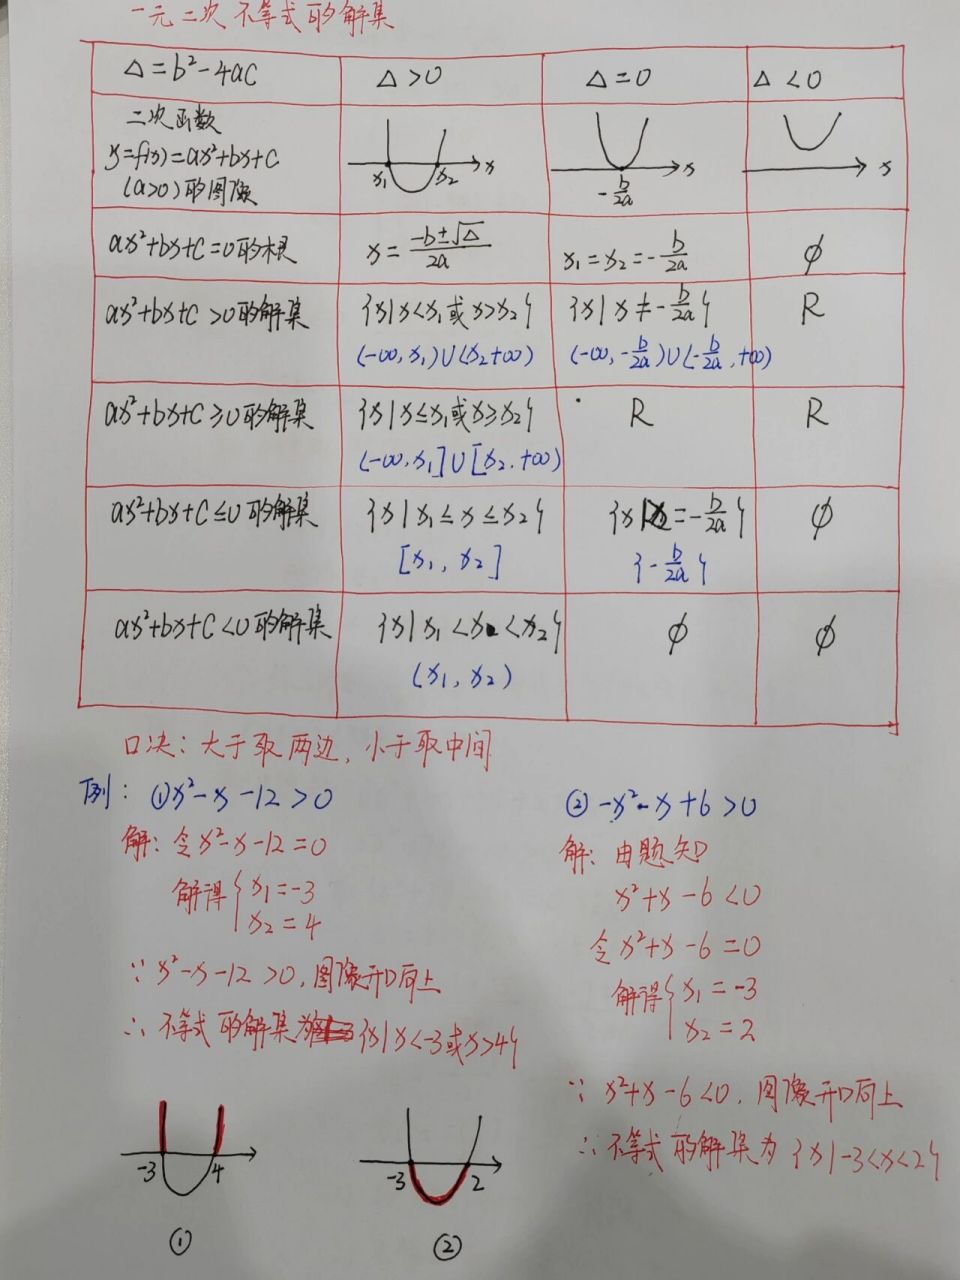 一元二次不等式的解集
Δ=b²-4ac Δ>0 Δ=0 Δ<0
二次函数
y=f(x)=ax²+bx+c
(a>0)的图像
x₁ x₂ x
-b/2a x
x
ax²+bx+c=0的根 x=(-b±√Δ)/2a x₁=x₂=-b/2a ∅
ax²+bx+c>0的解集 {x|x<x₁或x>x₂} {x|x≠-b/2a} R
(-∞,x₁)∪(x₂+∞) (-∞,-b/2a)∪(-b/2a,+∞)
ax²+bx+c≥0的解集 {x|x≤x₁或x≥x₂} R R
(-∞,x₁]∪[x₂,+∞)
ax²+bx+c≤0的解集 {x|x₁≤x≤x₂} {x|x=-b/2a} ∅
[x₁,x₂] {-b/2a}
ax²+bx+c<0的解集 {x|x₁<x<x₂} ∅ ∅
(x₁,x₂)
口决:大于取两边,小于取中间
例:①x²-x-12>0
解:令x²-x-12=0
解得{x₁=-3
x₂=4
∵x²-x-12>0,图像开口向上
∴不等式的解集为{x|x<-3或x>4}
-3 4
①
-3 2
②
②-x²-x+6>0
解:由题知
x²+x-6<0
令x²+x-6=0
解得{x₁=-3
x₂=2
∵x²+x-6<0,图像开口向上
∴不等式的解集为{x|-3<x<2}